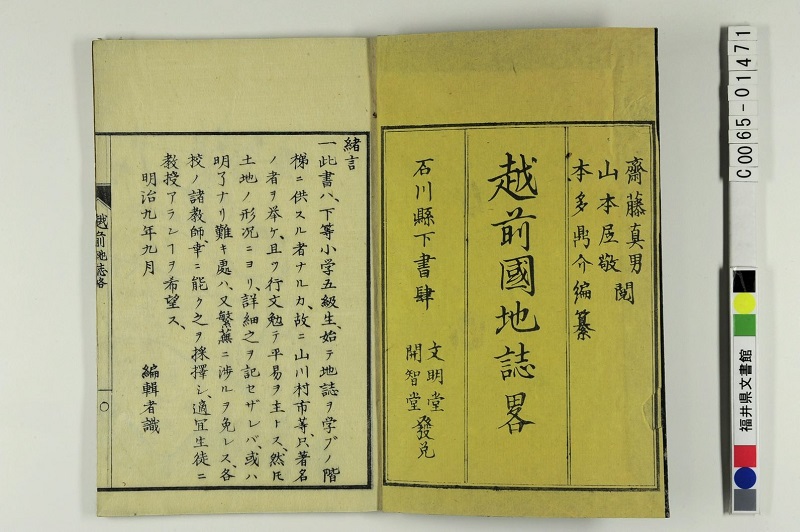 齋藤真男
山本居敬 閲
本多鼎介編纂
越前國地誌畧
石川縣下書肆
文明堂
開智堂
發兌
緒言
一此書ハ、下等小学五級生、始テ地誌ヲ学ブノ階
梯ニ供スル者ナルカ、故ニ山川村市等、只著名
ノ者ヲ挙ケ、且ツ行文勉テ平易ヲ主トス、然𪜈
土地ノ形況ニヨリ、詳細之ヲ記セザレバ、或ハ
明了ナリ難キ處ハ、又繁蕪ニ渉ルヲ免レス、各
校ノ諸教師、幸ニ能ク之ヲ採擇シ、適宜生徒ニ
教授アランヿヲ希望ス、
明治九年九月
編輯者識
越前地誌畧
〇
C0065-01471
福井県文書館